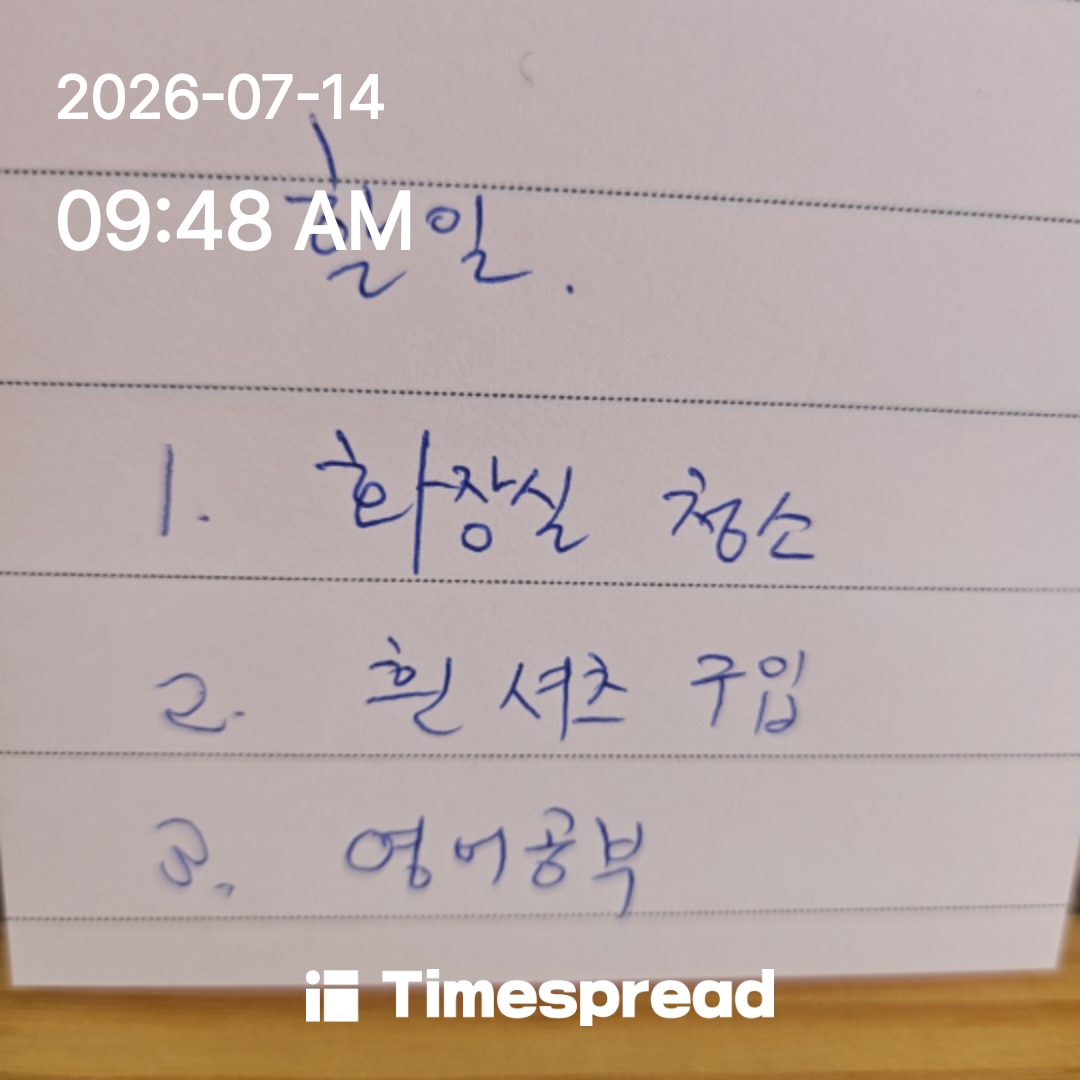 2026-07-14
09:48 AM
할 일.
1. 화장실 청소
2. 흰 셔츠 구입
3. 영어공부
Timespread